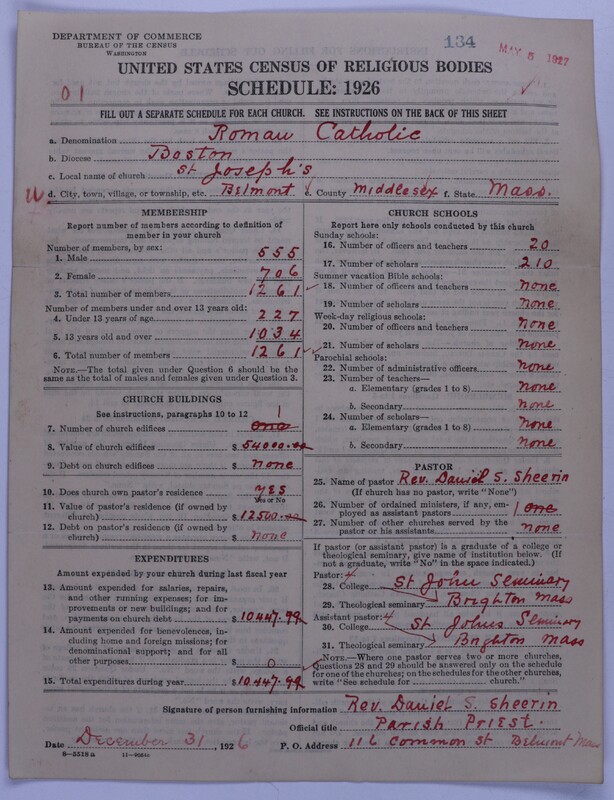 DEPARTMENT OF COMMERCE
BUREAU OF THE CENSUS
WASHINGTON
134
MAY 5 1927
UNITED STATES CENSUS OF RELIGIOUS BODIES
SCHEDULE: 1926
01
FILL OUT A SEPARATE SCHEDULE FOR EACH CHURCH. SEE INSTRUCTIONS ON THE BACK OF THIS SHEET
a. Denomination Roman Catholic
b. Diocese Boston
c. Local name of church St Joseph's
d. City, town, village, or township, etc. Belmont e. County Middlesex f. State Mass.
MEMBERSHIP
Report number of members according to definition of
member in your church
Number of members, by sex:
1. Male 555
2. Female 706
3. Total number of members 1261
Number of members under and over 13 years old:
4. Under 13 years of age 227
5. 13 years old and over 1034
6. Total number of members 1261
NOTE.—The total given under Question 6 should be the
same as the total of males and females given under Question 3.
CHURCH BUILDINGS
See instructions, paragraphs 10 to 12
1
7. Number of church edifices one
8. Value of church edifices $ 54000.00
9. Debt on church edifices $ none
10. Does church own pastor's residence yes
Yes or No
11. Value of pastor's residence (if owned by
church) $ 12500.00
12. Debt on pastor's residence (if owned by
church) $ none
EXPENDITURES
Amount expended by your church during last fiscal year
13. Amount expended for salaries, repairs,
and other running expenses; for im-
provements or new buildings; and for
payments on church debt $ 10447.99
14. Amount expended for benevolences, in-
cluding home and foreign missions; for
denominational support; and for all
other purposes $ 0
15. Total expenditures during year $ 10447.99
CHURCH SCHOOLS
Report here only schools conducted by this church
Sunday schools:
16. Number of officers and teachers 20
17. Number of scholars 210
Summer vacation Bible schools:
18. Number of officers and teachers none
19. Number of scholars none
Week-day religious schools:
20. Number of officers and teachers none
21. Number of scholars none
Parochial schools:
22. Number of administrative officers none
23. Number of teachers—
a. Elementary (grades 1 to 8) none
b. Secondary none
24. Number of scholars—
a. Elementary (grades 1 to 8) none
b. Secondary none
PASTOR
25. Name of pastor Rev. Daniel S. Sheerin
(If church has no pastor, write "None")
26. Number of ordained ministers, if any, em-
ployed as assistant pastors 1 one
27. Number of other churches served by the
pastor or his assistants none
If pastor (or assistant pastor) is a graduate of a college or
theological seminary, give name of institution below. (If
not a graduate, write "No" in the space indicated.)
Pastor: 4
28. College St John Seminary
29. Theological seminary Brighton Mass
Assistant pastor: 4
30. College St Johns Seminary
31. Theological seminary Brighton Mass
NOTE.—Where one pastor serves two or more churches,
Questions 28 and 29 should be answered only on the schedule
for one of the churches; on the schedules for the other churches,
write "See schedule for church."
Signature of person furnishing information Rev. Daniel S. Sheerin
Official title Parish Priest.
Date December 31, 1926 P. O. Address 116 Common St Belmont Mass
8—5518a